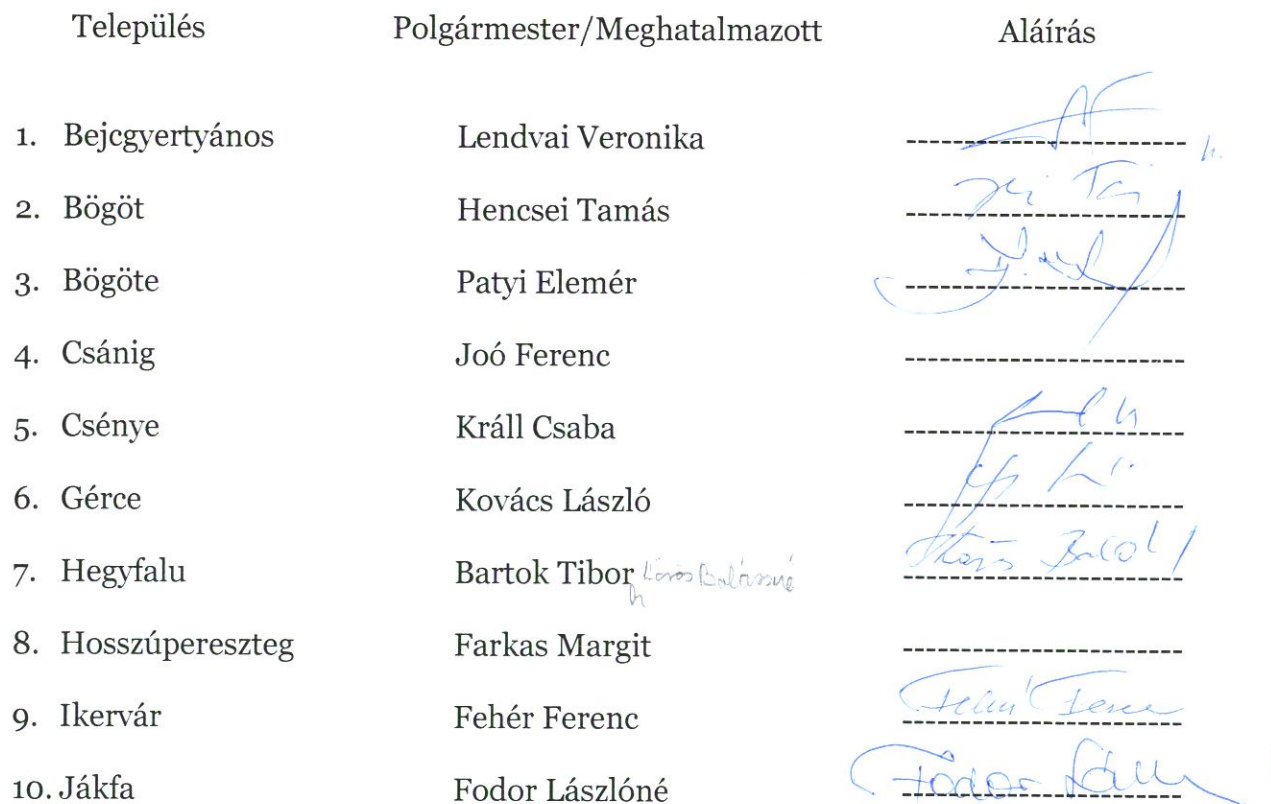 Település Polgármester/Meghatalmazott Aláírás
1. Bejcgyertyános Lendvai Veronika
2. Bögöt Hencsei Tamás
3. Bögöte Patyi Elemér
4. Csánig Joó Ferenc
5. Csénye Králl Csaba
6. Gérce Kovács László
7. Hegyfalu Bartok Tibor
8. Hosszúpereszteg Farkas Margit
9. Ikervár Fehér Ferenc
10. Jákfa Fodor Lászlóné Fodor